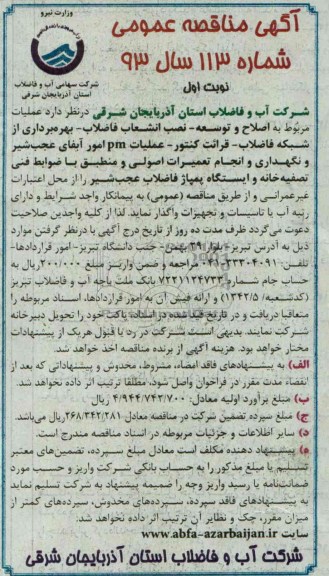 وزارت نیرو
شرکت سهامی آب و فاضلاب
استان آذربایجان شرقی
آگهی مناقصه عمومی
شماره ۱۱۳ سال ۹۳
نوبت اول
شرکت آب و فاضلاب استان آذربایجان شرقی درنظر دارد عملیات
مربوط به اصلاح و توسعه- نصب انشعاب فاضلاب- بهره‌برداری از
شبکه فاضلاب- قرائت کنتور- عملیات pm امور آبفای عجب‌شیر
و نگهداری و انجام تعمیرات اصولی و منطبق با ضوابط فنی
تصفیه‌خانه و ایستگاه پمپاژ فاضلاب عجب‌شیر را از محل اعتبارات
غیرعمرانی و از طریق مناقصه (عمومی) به پیمانکار واجد شرایط و دارای
رتبه آب یا تاسیسات و تجهیزات واگذار نماید. لذا از کلیه واجدین صلاحیت
دعوت می‌گردد ظرف مدت ده روز از تاریخ درج آگهی با درنظر گرفتن موارد
ذیل به آدرس تبریز- بلوار ۲۹ بهمن- جنب دانشگاه تبریز- امور قراردادها-
تلفن: ۳۳۳۰۴۰۹۱-۰۴۱ مراجعه و ضمن واریز مبلغ ۲۰۰/۰۰۰ ریال به
حساب جام شماره ۷۲۲۱۱۲۴۷۳۳ بانک ملت باجه آب و فاضلاب تبریز
(کدشعبه ۱۳۴۲/۵) و ارائه فیش آن به امور قراردادها، اسناد مربوطه را
متعاقبا دریافت و در تاریخ قید شده در اسناد، پاکت خود را تحویل دبیرخانه
شرکت نمایند. بدیهی است شرکت در رد یا قبول هریک از پیشنهادات
مختار خواهد بود. هزینه آگهی از برنده مناقصه اخذ خواهد شد.
الف) به پیشنهادهای فاقد امضاء، مشروط، مخدوش و پیشنهاداتی که بعد از
انقضاء مدت مقرر در فراخوان واصل شود، مطلقا ترتیب اثر داده نخواهد شد.
ب) مبلغ برآورد اولیه معادل: ۴/۹۴۴/۷۴۲/۷۰۰ ریال
ج) مبلغ سپرده تضمین شرکت در مناقصه معادل ۲۶۸/۳۴۲/۲۸۱ ریال می‌باشد.
د) سایر اطلاعات و جزئیات مربوطه در اسناد مناقصه مندرج است.
ه) پیشنهاد دهنده مکلف است معادل مبلغ سپرده، تضمین‌های معتبر
تسلیم یا مبلغ مذکور را به حساب بانکی شرکت واریز و حسب مورد
ضمانت‌نامه یا رسید واریز وجه را ضمیمه پیشنهاد به شرکت تسلیم نماید
به پیشنهادهای فاقد سپرده، سپرده‌های مخدوش، سپرده‌های کمتر از
میزان مقرر، چک و نظایر آن ترتیب اثر داده نخواهد شد:
سایت www.abfa-azarbaijan.ir
شرکت آب و فاضلاب استان آذربایجان شرقی